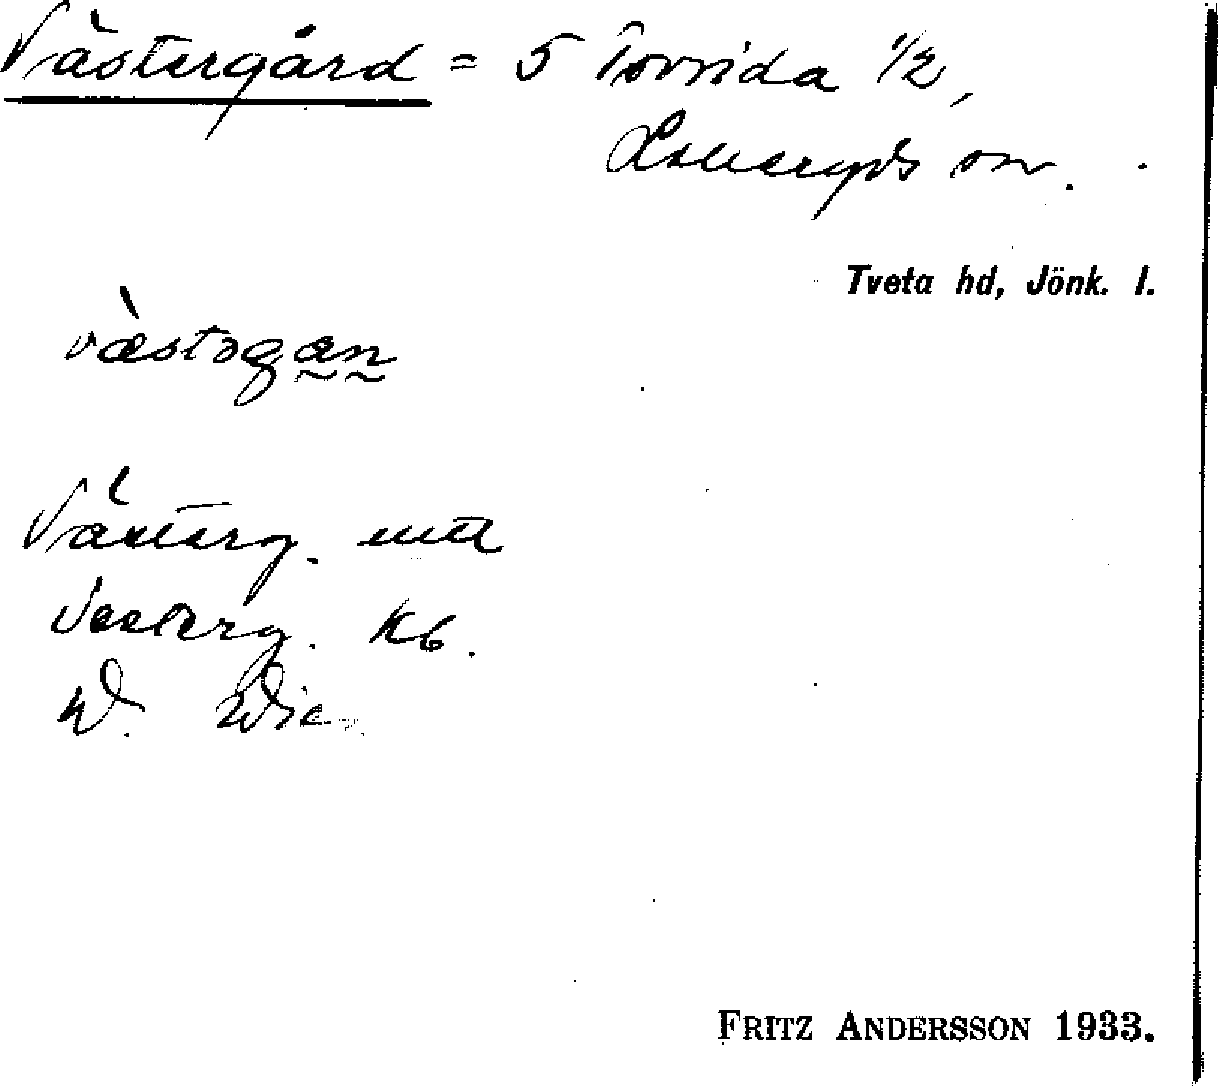 Västergård = 5 Torsrida 1/2,
Lekeryds sn.
Tveta hd, Jönk. l.
væstəgan
Västerg. uttl
Vesterg. Kb.
W. Wie
FRITZ ANDERSSON 1933.